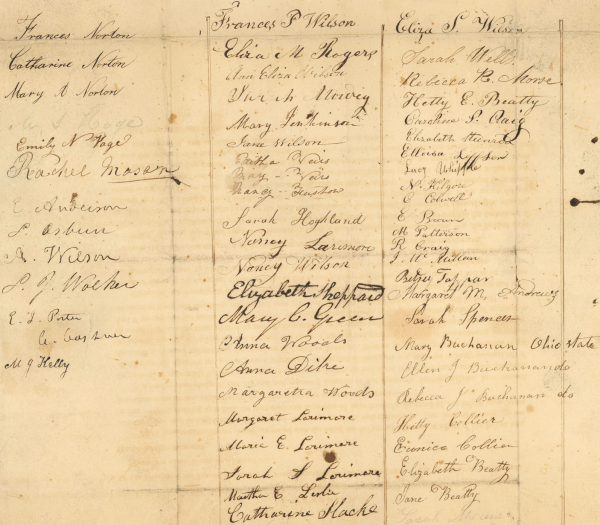 Frances Norton
Catharine Norton
Mary A Norton
Emily N Page
Rachel Mason
E. Anderson
Osburn
A. Wilson
E. J. Porter
M J Kelly
Frances P Wilson
Eliza M Rogers
Ann Eliza Wilson
Mary Jenkinson
Jane Wilson
Nancy
Sarah Hoghland
Nancy Larimore
Nancy Wilson
Elizabeth Sheppard
Mary C. Green
Anna Woods
Anna Dike
Margaretta Woods
Margaret Larimore
Marie E. Lorimore
Sarah S Lorimere
Martha E Leslie
Catharine Hacke
Eliza S. Wilson
Sarah Well
Rebecca R. Morse
Hetty E. Beatty
Caroline S. Craig
Elizabeth
Lucy Whipple
N. Kilgore
C Colwell
E Brown
M Patterson
R Craig
Betsy Tappan
Margaret M. Andrews
Sarah Spencer
Mary Buchanan Ohio state
Ellen J Buchanan do
Rebecca J Buchanan do
Hetty Collier
Collier
Elizabeth Beatty
Jane Beatty